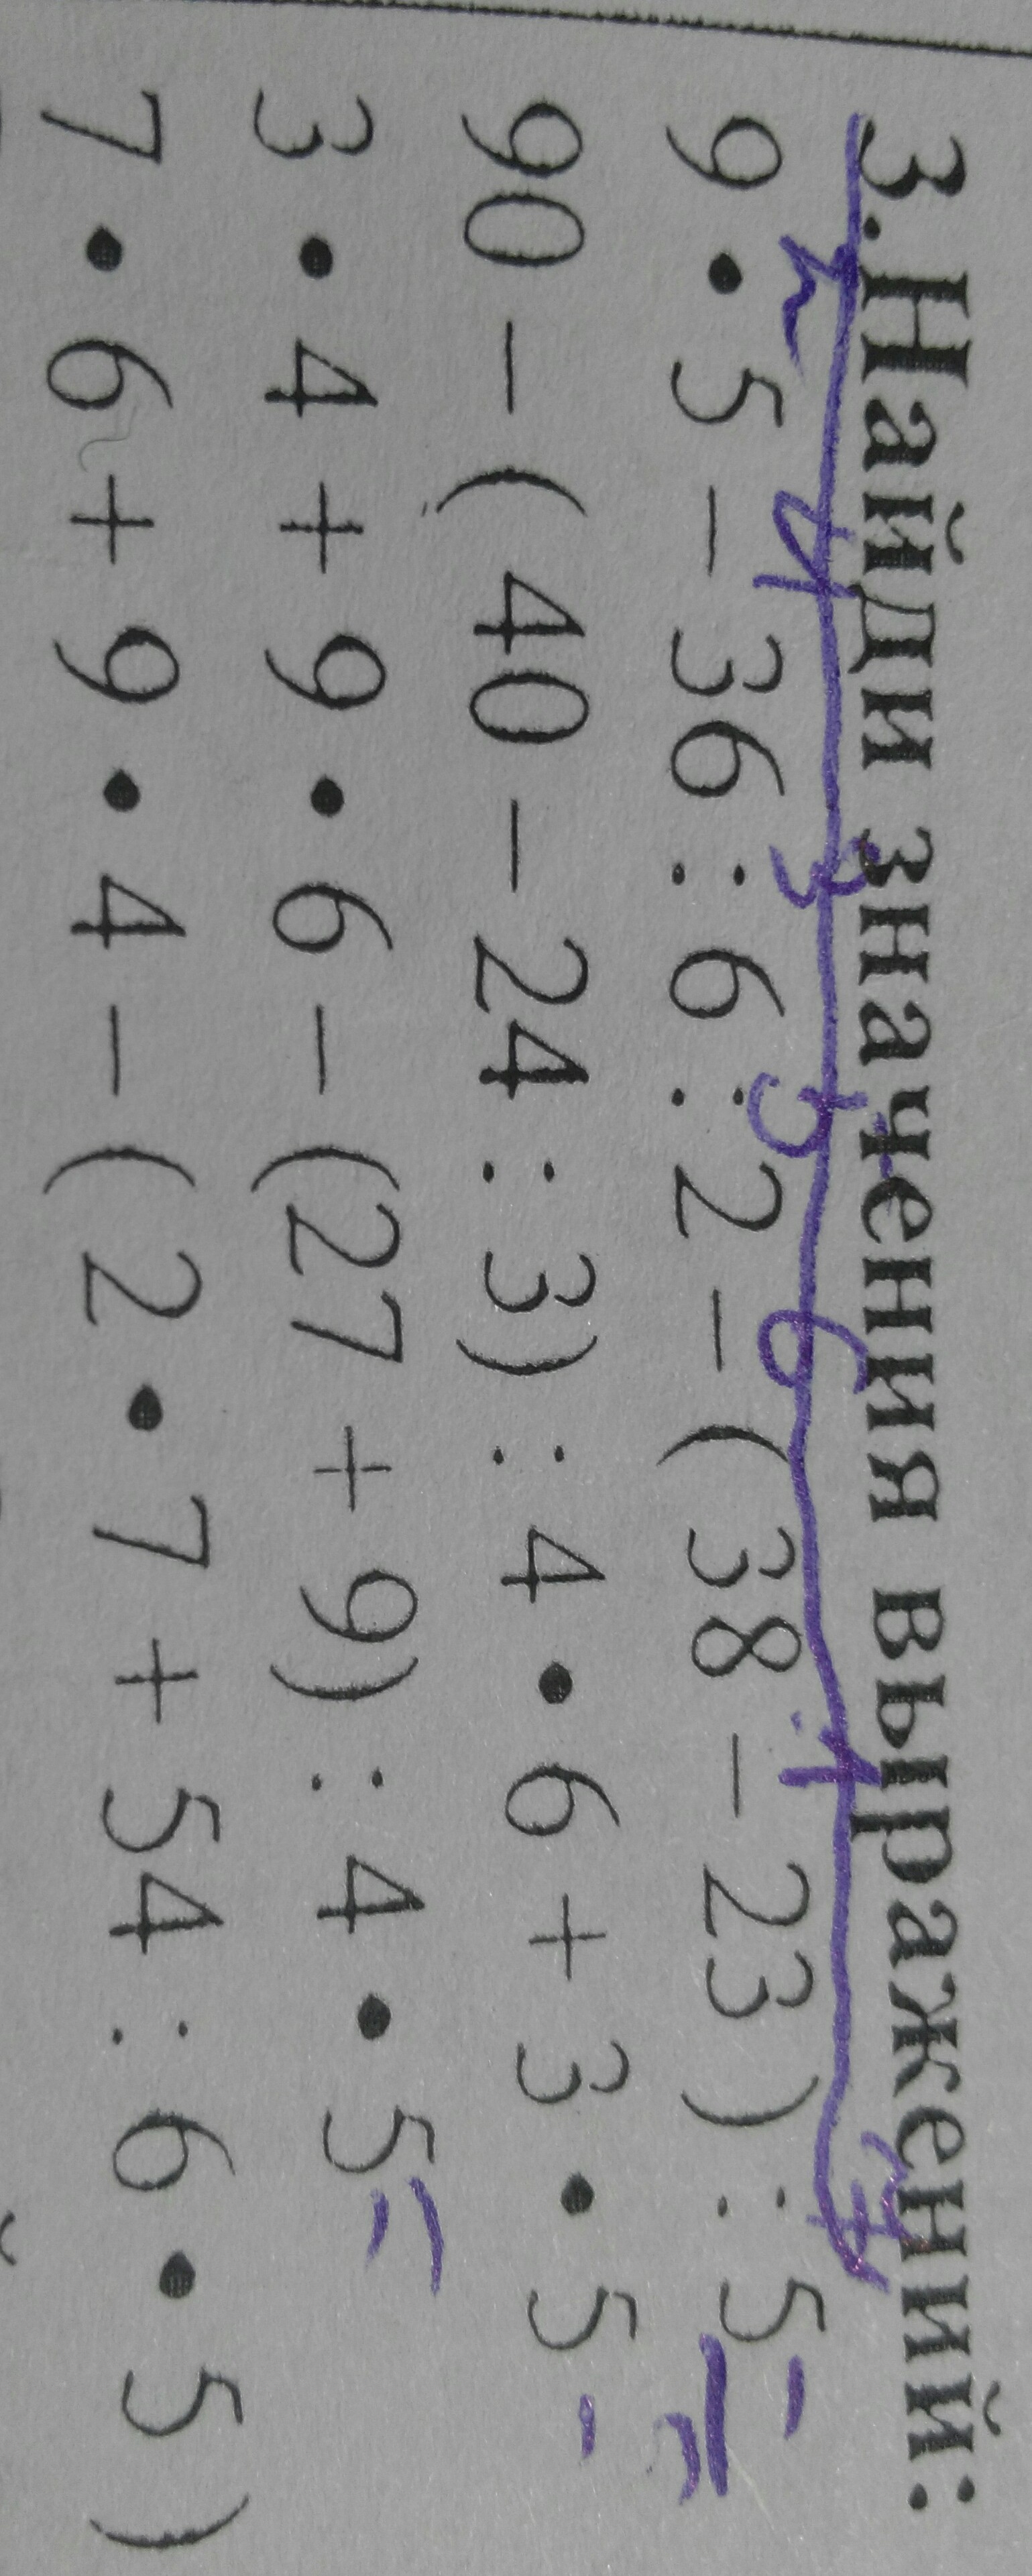 3. Найди значения выражений:
2 4 3 5 6 1
9 • 5 – 36 : 6 : 2 – ( 38 – 23 ) : 5 =
90 – ( 40 – 24 : 3) : 4 • 6 + 3 • 5 -
3 • 4 + 9 • 6 – (27 + 9) : 4 • 5 =
7 • 6 + 9 • 4 – ( 2 • 7 + 54 : 6 • 5 )